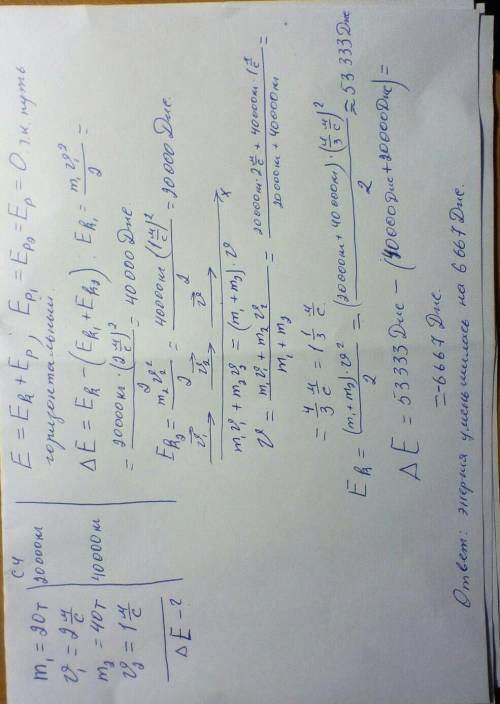 СИ
m₁ = 20т | 20000кг
v₁ = 2 м/с
m₂ = 40т | 40000кг
v₂ = 1 м/с
ΔE – ?
E = Eк + Eр, Eр₁ = Eр₂ = Eр = 0, т.к. путь
горизонтальный.
ΔE = Eк – (Eк₁ + Eк₂). Eк₁ = m₁v₁²/2 =
= 20000кг · (2 м/с)²/2 = 40000 Дж.
Eк₂ = m₂v₂²/2 = 40000кг (1 м/с)²/2 = 20000 Дж.
v₁ v₂ v x
m₁v₁ + m₂v₂ = (m₁ + m₂) · v
v = (m₁v₁ + m₂v₂)/(m₁ + m₂) = (20000кг · 2 м/с + 40000кг · 1 м/с)/(20000кг + 40000кг) =
= 4/3 м/с = 1 1/3 м/с
Eк = (m₁ + m₂) · v²/2 = (20000кг + 40000кг) · (4/3 м/с)²/2 ≈ 53 333 Дж
ΔE = 53 333 Дж – (40000 Дж + 20000 Дж) =
= –6667 Дж.
Ответ: энергия уменьшилась на 6 667 Дж.